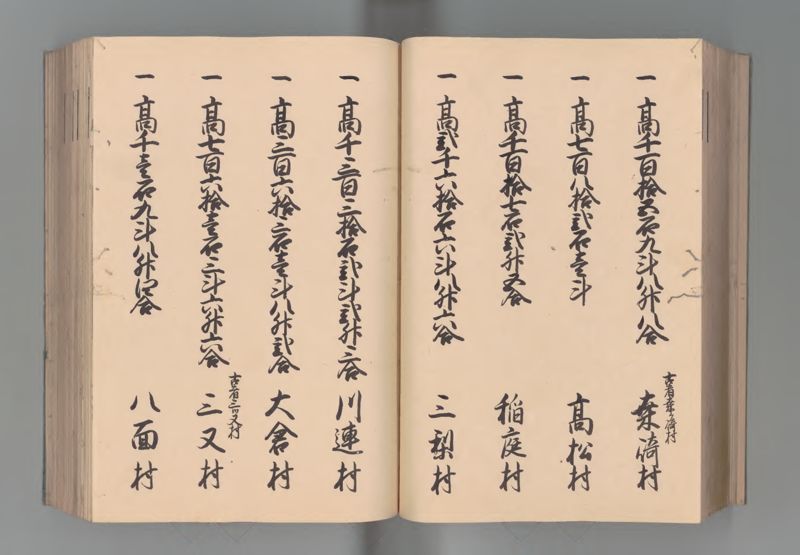 一 高千百拾五石九斗八升八合
古者桑ケ崎村
桑崎村
一 高七百八拾弐石壱斗
高松村
一 高千百拾七石弐升五合
稲庭村
一 高弐千六拾石六斗八升六合
三梨村
一 高千三百二拾石弐斗弐升三合
川連村
一 高三百六拾三石壱斗八升弐合
大倉村
一 高七百六拾壱石三斗六升六合
古者三ツ又村
三又村
一 高千壱石九斗八升四合
八面村